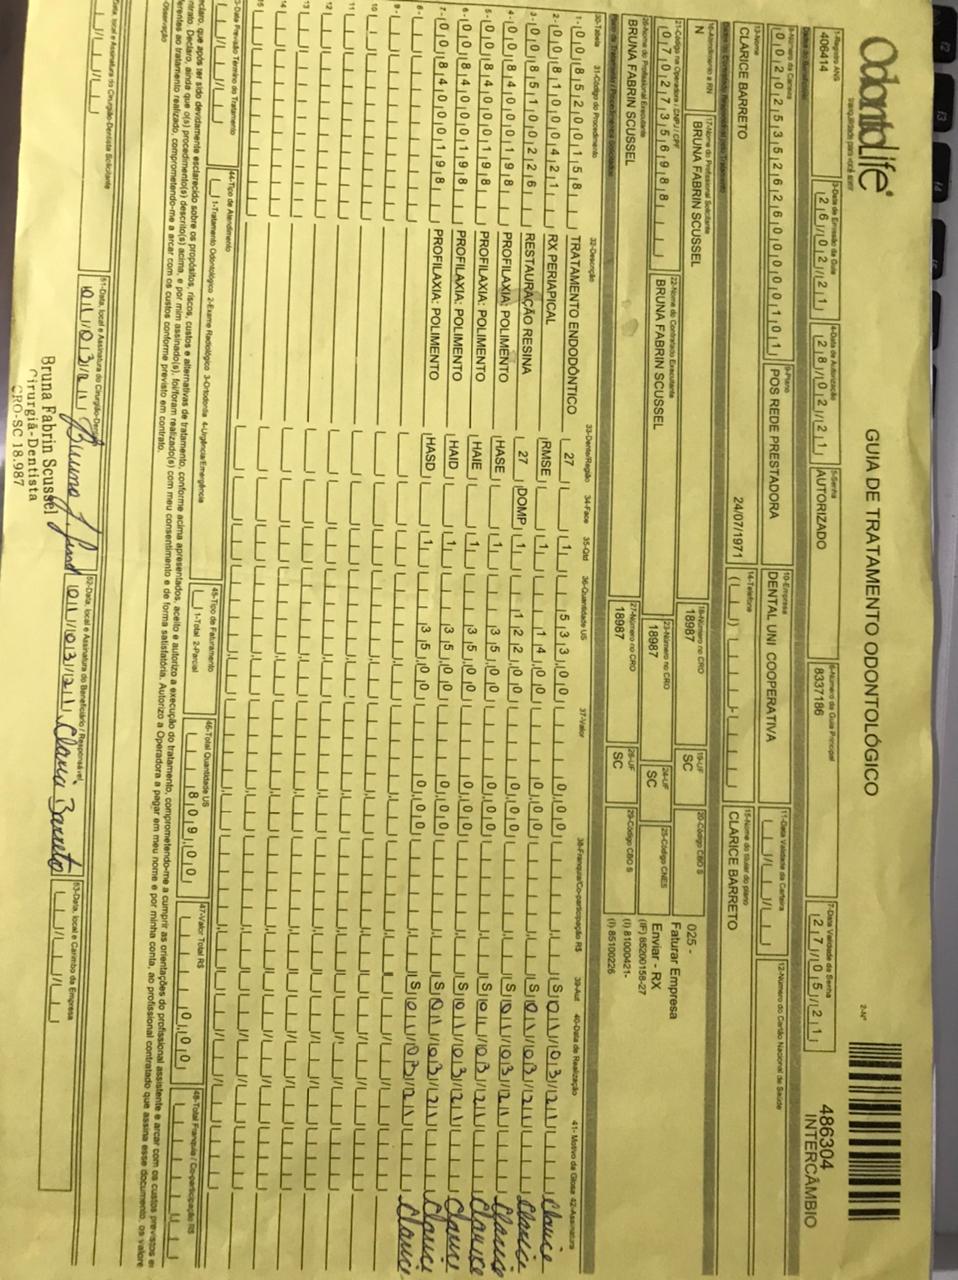 OdontoLife®
tranquilidade para você sorrir
GUIA DE TRATAMENTO ODONTOLÓGICO
2-Nº
486304
INTERCÂMBIO
1-Registro ANS
406414
3-Data de Emissão da Guia
26/02/21
4-Data de Autorização
28/02/21
5-Senha
AUTORIZADO
6-Número da Guia Principal
8337186
7-Data Validade da Senha
27/05/21
8-Número da Carteira
00202535262600000101
9-Plano
POS REDE PRESTADORA
10-Empresa
DENTAL UNI COOPERATIVA
11-Data Validade da Carteira
12-Número do Cartão Nacional de Saúde
13-Nome
CLARICE BARRETO
24/07/1971
14-Telefone
15-Nome do titular do plano
CLARICE BARRETO
16-Atendimento a RN
N
17-Nome do Profissional Solicitante
BRUNA FABRIN SCUSSEL
18-Número no CRO
18987
19-UF
SC
20-Código CBO S
025 -
Faturar Empresa
Enviar - RX
(IF) 85200158-27
(I) 81000421-
(I) 85100226
21-Código na Operadora / CNPJ / CPF
07027356988
22-Nome do Contratado Executante
BRUNA FABRIN SCUSSEL
23-Número no CRO
18987
24-UF
SC
25-Código CNES
26-Nome do Profissional Executante
BRUNA FABRIN SCUSSEL
27-Número no CRO
18987
28-UF
SC
29-Código CBO S
30-Tabela 31-Código do Procedimento 32-Descrição 33-Dente/Região 34-Face 35-Qtd 36-Quantidade US 37-Valor 38-Franquia/Co-participação R$ 39-Aut 40-Data de Realização 41-Motivo da Glosa 42-Assinatura
1- 00 85200158 TRATAMENTO ENDODÔNTICO 27 1 533,00 0,00 S 01/03/21 Clarice
2- 00 81000421 RX PERIAPICAL RMSE 1 14,00 0,00 S 01/03/21 Clarice
3- 00 85100226 RESTAURAÇÃO RESINA 27 DOMP 1 122,00 0,00 S 01/03/21 Clarice
4- 00 84000198 PROFILAXIA: POLIMENTO HASE 1 35,00 0,00 S 01/03/21 Clarice
5- 00 84000198 PROFILAXIA: POLIMENTO HAIE 1 35,00 0,00 S 01/03/21 Clarice
6- 00 84000198 PROFILAXIA: POLIMENTO HAID 1 35,00 0,00 S 01/03/21 Clarice
7- 00 84000198 PROFILAXIA: POLIMENTO HASD 1 35,00 0,00 S 01/03/21 Clarice
8-
9-
10
11
12
13
14
15
43-Data Previsão Término do Tratamento
44-Tipo de Atendimento
1-Tratamento Odontológico 2-Exame Radiológico 3-Ortodontia 4-Urgência/Emergência
45-Tipo de Faturamento
1-Total 2-Parcial
46-Total Quantidade US
809,00
47-Valor Total R$
0,00
48-Total Franquia / Co-participação R$
que após ter sido devidamente esclarecido sobre os propósitos, riscos, custos e alternativas de tratamento, conforme acima apresentados, aceito e autorizo a execução do tratamento, comprometendo-me a cumprir as orientações do profissional assistente e arcar com os custos previstos
Declaro, ainda que o(s) procedimento(s) descrito(s) acima, e por mim assinado(s), foi/foram realizado(s) com meu consentimento e de forma satisfatória. Autorizo a Operadora a pagar em meu nome e por minha conta, ao profissional contratado que assina esse documento, os valores
ao tratamento realizado, comprometendo-me a arcar com os custos conforme previsto em contrato.
Observação
Data, local e Assinatura do Cirurgião-Dentista Solicitante
51-Data, local e Assinatura do Cirurgião-Dentista
01/03/21
52-Data, local e Assinatura do Beneficiário / Responsável
01/03/21 Clarice Barreto
53-Data, local e Carimbo da Empresa
Bruna Fabrin Scussel
Cirurgiã-Dentista
CRO-SC 18.987